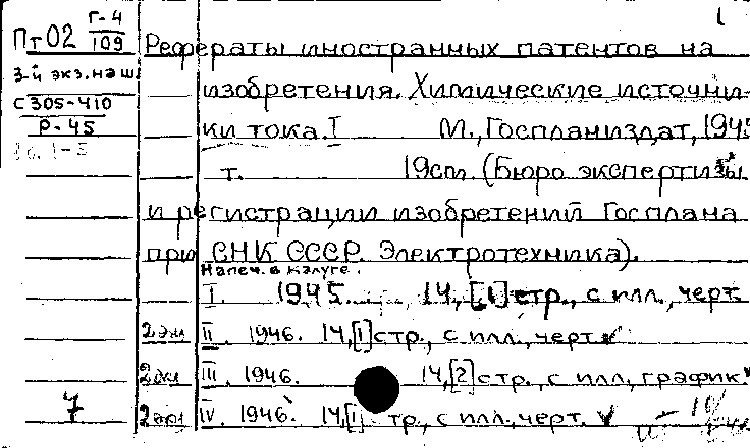 Пт02 Г-4/109
3-й экз. наш
С 305-410
Р-45
Рефераты иностранных патентов на
изобретения. Химические источни-
ки тока. I М., Госпланиздат, 1945
т. 19см. (Бюро экспертизы
и регистрации изобретений Госплана
при СНК СССР. Электротехника).
Напеч. в Калуге.
I. 1945. 14, [1] стр., с илл., черт.
2 экз II. 1946. 14, [1] стр., с илл., черт. ✓
2 экз III. 1946. 14, [2] стр., с илл., график ✓
7 2 экз IV. 1946. 14, [1] тр., с илл., черт. ✓